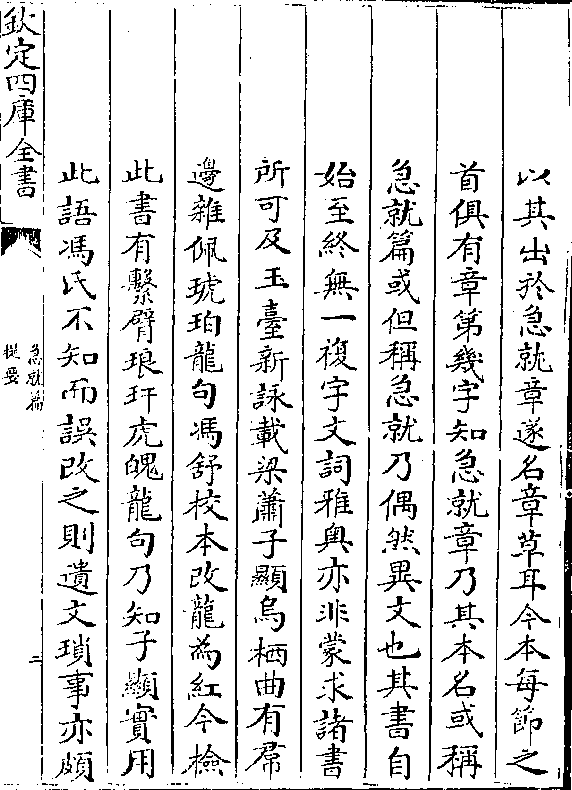 以其出於急就章遂名章草耳今本每節之
首俱有章第幾字知急就章乃其本名或稱
急就篇或但稱急就乃偶然異文也其書自
始至終無一複字文詞雅奥亦非蒙求諸書
所可及玉臺新詠載梁蕭子顯烏栖曲有㡳
邊雜佩琥珀龍句馮舒校本改龍為紅今檢
此書有繫臂琅玕虎魄龍句乃知子顯實用
此語馮氏不知而誤改之則遺文瑣事亦頗
欽定四庫全書
急就篇
提要
二